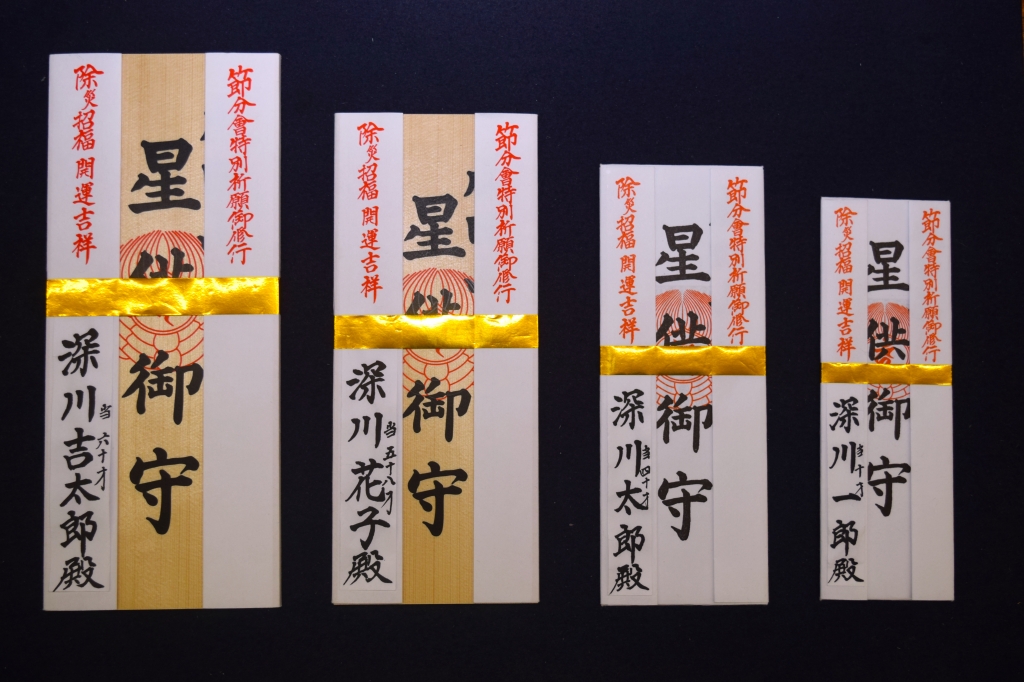 節分會特別祈願御修行
星供御守
除災招福 開運吉祥
深川吉太郎殿
当六十才
節分會特別祈願御修行
星供御守
除災招福 開運吉祥
深川花子殿
当五十八才
節分會特別祈願御修行
星供御守
除災招福 開運吉祥
深川太郎殿
当四十才
節分會特別祈願御修行
星供御守
除災招福 開運吉祥
深川一郎殿
当十才